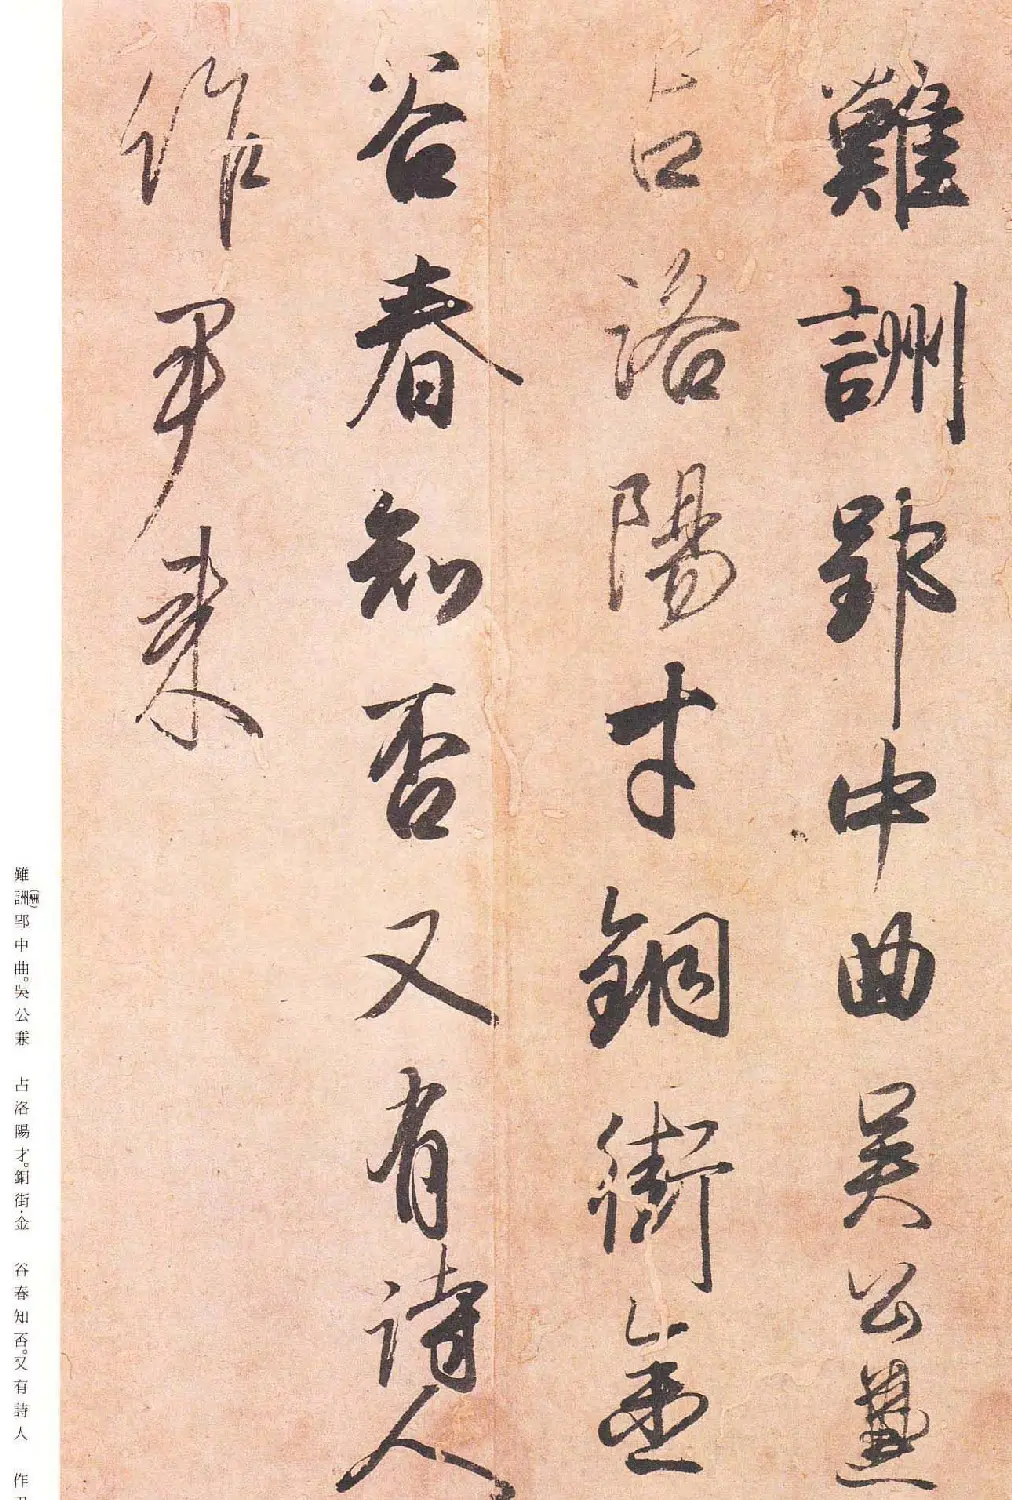 難詶郢中曲吴公兼
占洛陽才銅街金
谷春知否又有詩人
作尹来
難詶(酬)郢中曲。吳公兼　占洛陽才。銅街·金　谷春知否。又有詩人　作尹